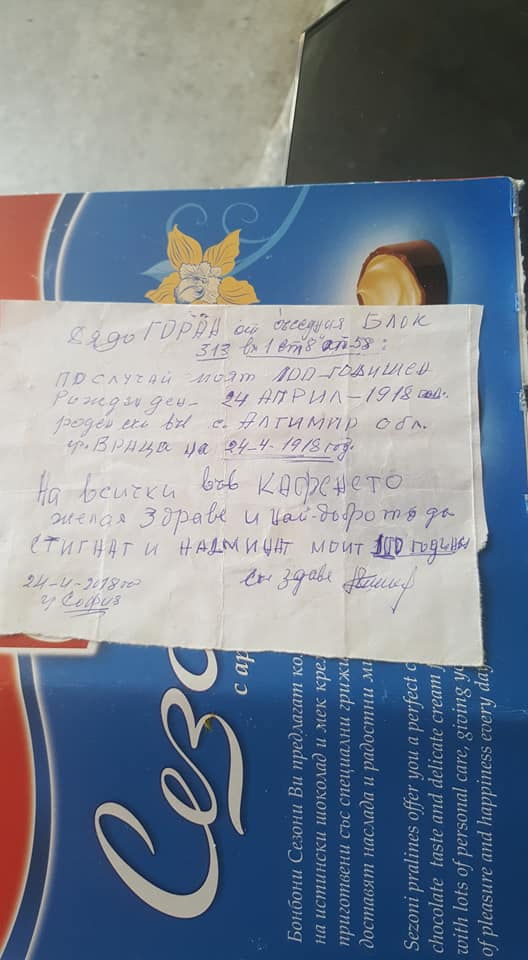 Дядо ГОРАН от съседния БЛОК
313 вх 1 ет 8 ап 58:
ПО СЛУЧАЙ моят 100-годишен
Рожден ден- 24 АПРИЛ-1918 год.
роден съм във с. АЛТИМИР обл.
гр. ВРАЦА на 24-4-1918 год.
На всички във КАФЕНЕТО
желая Здраве и най-доброто да
СТИГНАТ И НАДМИНАТ МОИТ 100 години
24-4-2018 год
гр София
със здраве
Сезо
с ар
Бонбони Сезони Ви предлагат ко
на истински шоколад и мек кре
приготвени със специални грижи
доставят наслада и радостни ми
Sezoni pralines offer you a perfect c
chocolate taste and delicate cream
with lots of personal care, giving yo
of pleasure and happiness every day